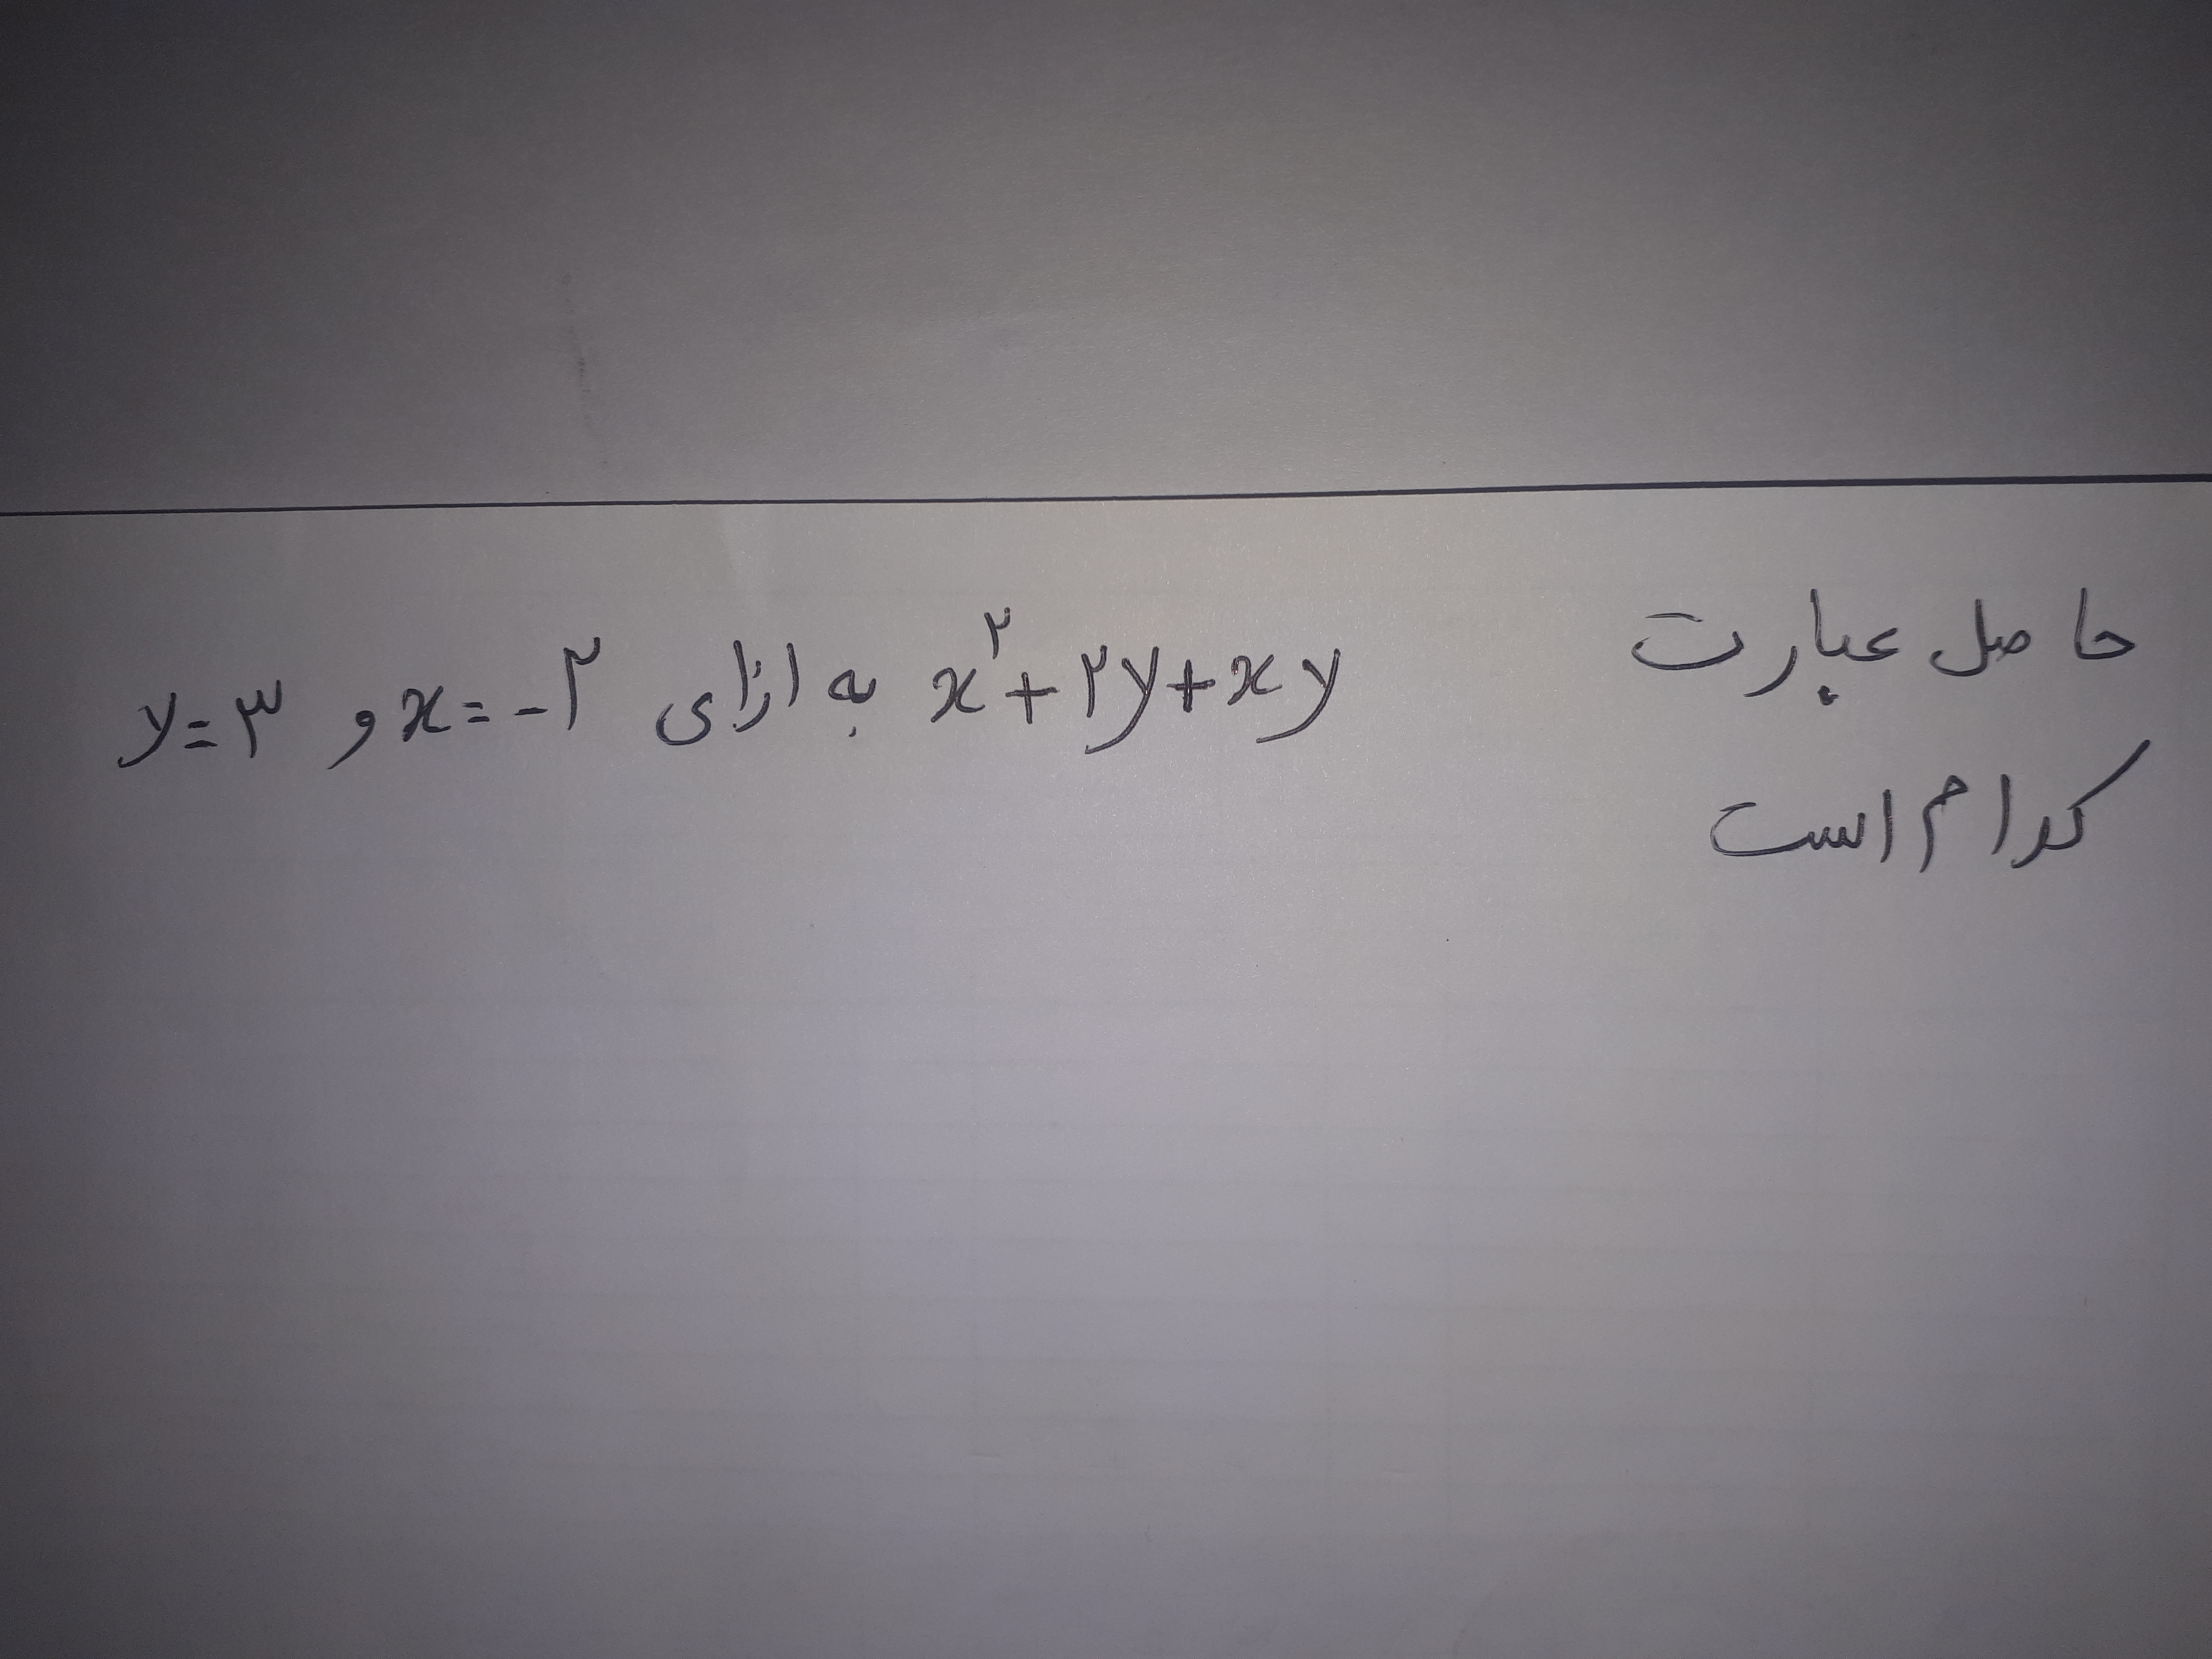 حاصل عبارت x² + ۲y + xy به ازای x = -۲ و y = ۳
کدام است